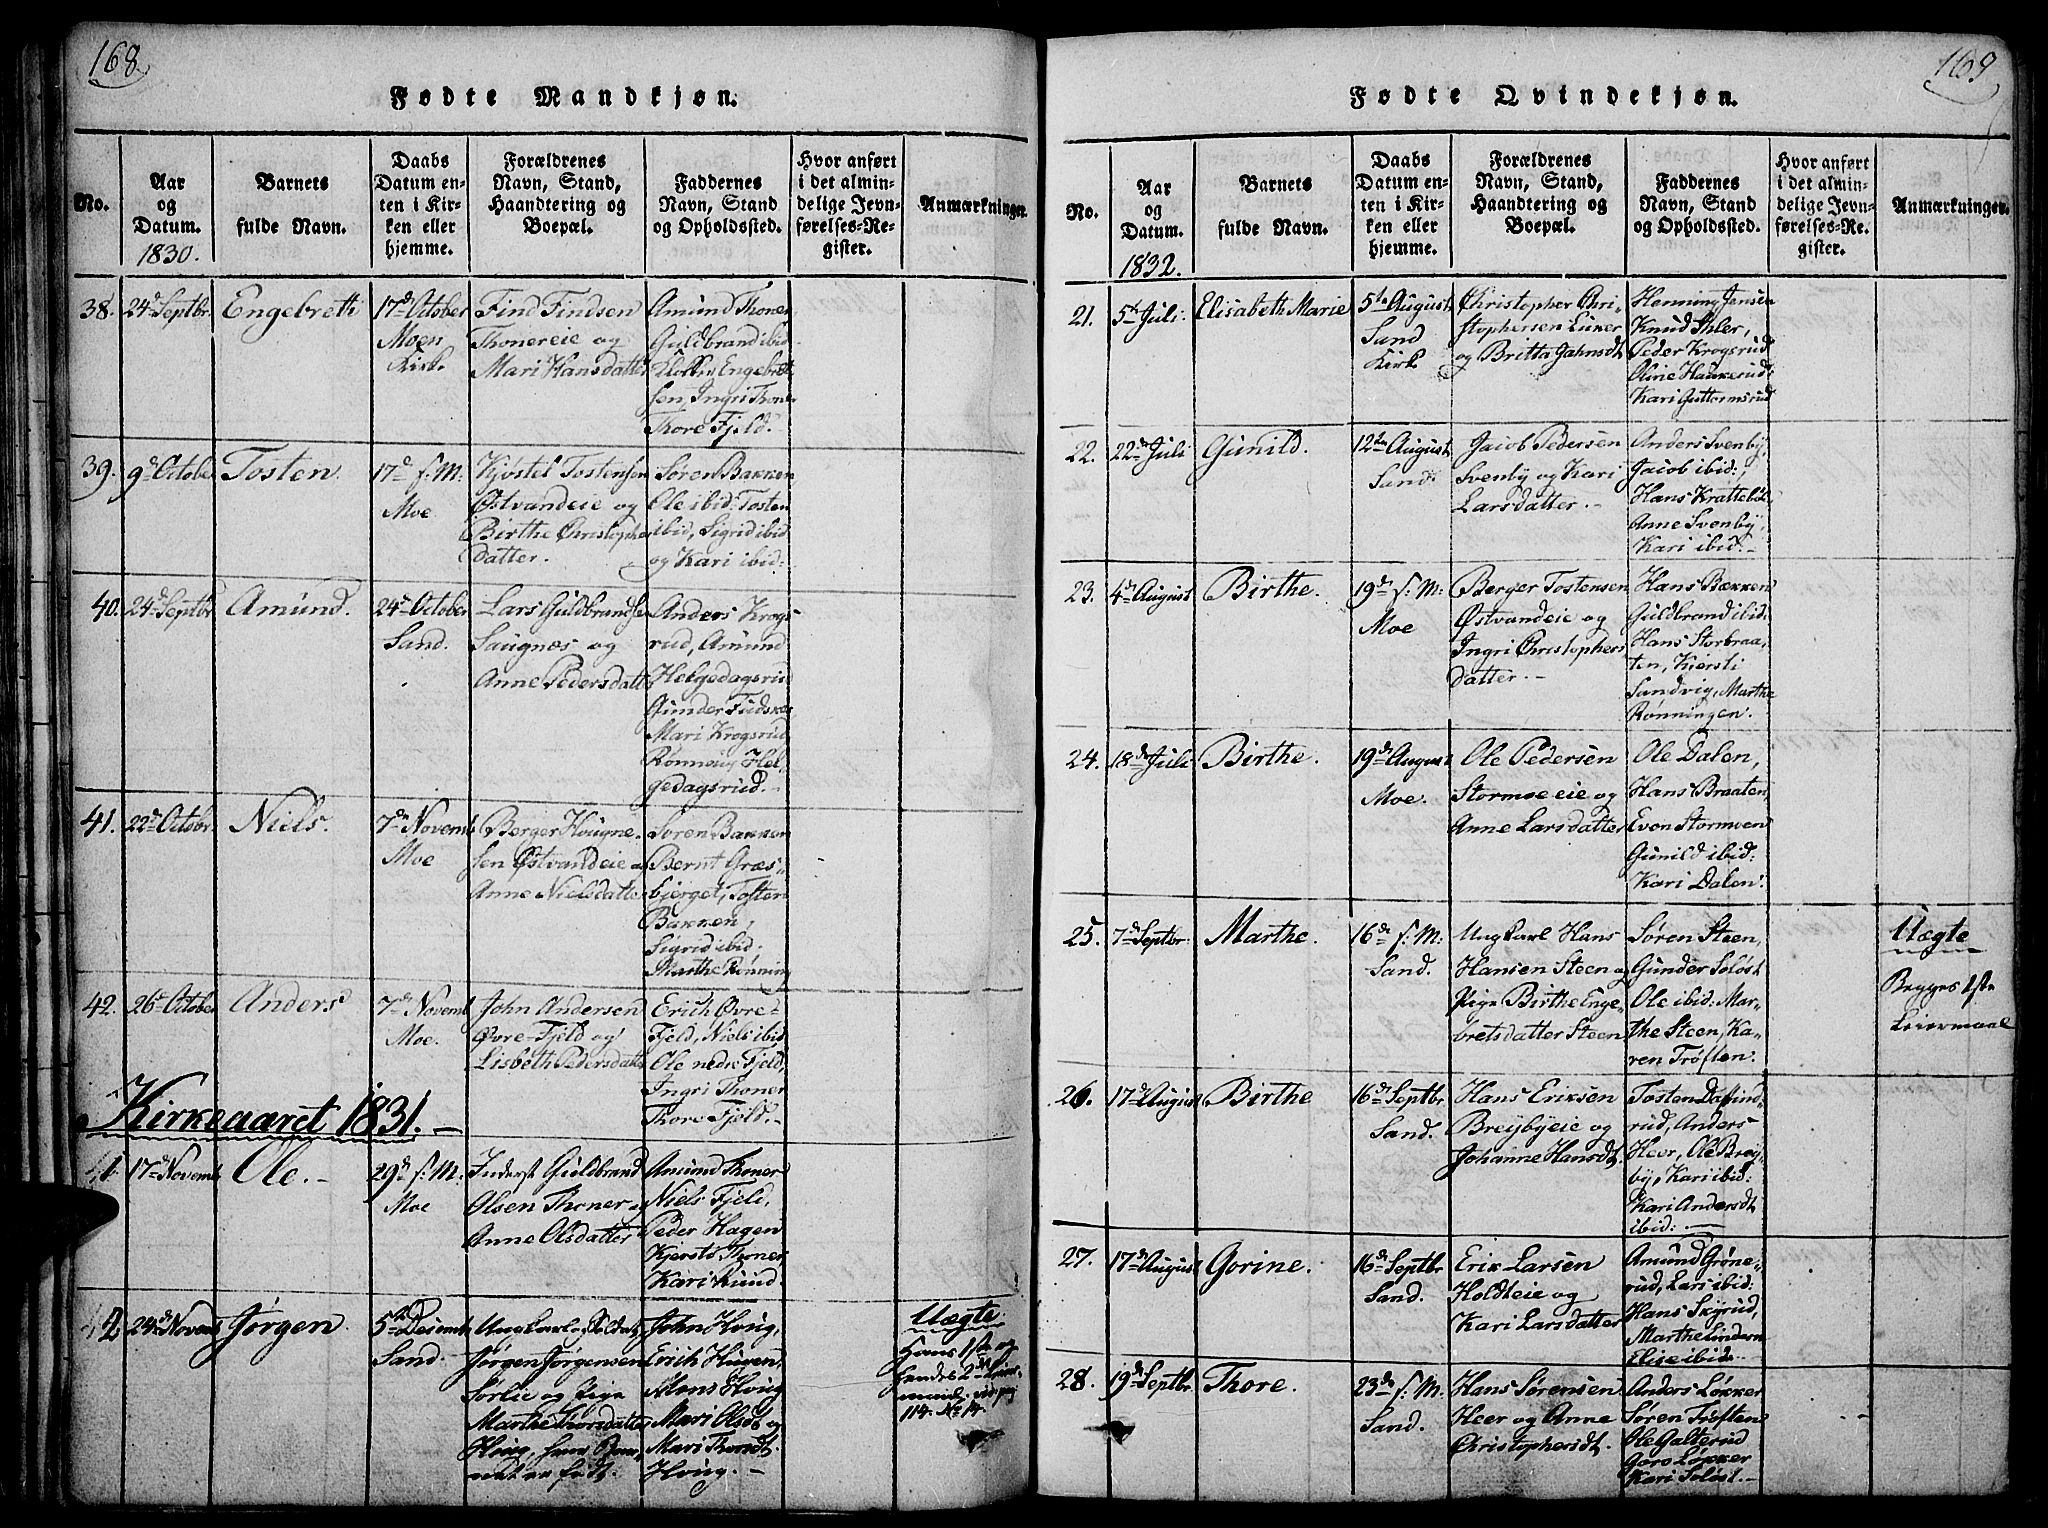 168
Fødte Mandkjøn.
No.
Aar
og
Datum.
1830.
Barnets
fulde Navn.
Daabs
Datum en-
ten i Kir-
ken eller
hjemme.
Forældrenes
Navn, Stand,
Haandtering og
Boepæl.
Faddernes
Navn, Stand
og Opholdssted.
Hvor anført
i det almin-
delige Jevn-
førelses-Re-
gister.
Anmærkninger.
38.
24de Septbr.
Engebreth
17de October
Moen
Kirk.
Find Findsen
Thonereie og
Mari Hansdatter
Amund Thoner
Guldbrand ibid.
Engebret-
sen, Ingri Thoner
Thore Fjeld.
39.
9de October
Tosten.
17de s: M:
Moe.
Kjøstel Tostensen
Østvandeie og
Birthe Christophers
datter.
Søren Bakken
Ole ibid: Tosten
ibid, Sigrid ibid
og Kari ibid:
40.
24de Septbr
Amund.
24de October
Sand.
Lars Guldbrandsen
Saugnæs og
Anne Pedersdatter
Anders Krogs-
rud, Amund
Helgedagsrud
Gunder Fudskes
Mari Krogsrud
Rønnoug Hel-
gedagsrud.-
41.
22de Octobr.
Niels.
7de Novemb
Moe
Berger Hougne-
sen Østvandeie og
Anne Nielsdatter
Søren Bakken
Bernt Græs-
bjerget, Tosten
Bakken,
Sigrid ibid:
Marthe Rønning
42.
26de October
Anders
7de Novemb
Moe.
John Andersen
Øvre-Fjeld og
Lisbeth Pedersdatter
Erich Øvre-
Fjeld, Niels ibid
Ole nedre Fjeld,
Ingri Thoner
Thore Fjeld.-
Kirkeaaret 1831.-
41.
17de Novemb
Ole.-
29de s: M.
Moe
Inderst Guldbrand
Olsen Thoner og
Anne Olsdatter
Amund Thoner
Niels Fjeld,
Peder Hagen
Kjersti Thoner,
Kari Rund.
42
24de Novemb
Jørgen.
5te Decemb
Sand.
Ungkarl og Soldat
Jørgen Jørgensen
Sørlie og Pige
Marthe Thorsdatter
Hvig, hvor Bar-
net er født.
John Hvig,
Erich Hagen,
Mons Hvig
Mari Olsdt og
Mari Thorsdt.
Hvig.-
Uægte
Hans 1ste og
hendes 2det Leier-
maal. vid. pag
114. No 14.
169
Fødte Qvindekjøn.
No.
Aar
og
Datum.
1832.
Barnets
fulde Navn.
Daabs
Datum en-
ten i Kir-
ken eller
hjemme.
Forældrenes
Navn, Stand,
Haandtering og
Boepæl.
Faddernes
Navn, Stand
og Opholdssted.
Hvor anført
i det almin-
delige Jevn-
førelses-Re-
gister.
Anmærkninger.
21.
5te Juli.
Elisabeth Marie
5te August
Sand
Kirk
Christopher Chri-
stophersen Luker
og Britta Jahnsdt
Henning Jensen
Knud Ihler,
Peder Krogsrud
Oline Haukerud
Kari Guttormsrud
22.
22de Juli
Gunild.
12te August
Sand.
Jacob Pedersen
Svenby og Kari
Larsdatter.-
Anders Svenby,
Jacob ibid:,
Hans Krattebøl
Anne Svenby,
Kari ibid:-
23.
4de August
Birthe.
19de s: M:
Moe
Berger Tostensen
Østvandeie og
Ingri Christophers
datter.-
Hans Bækken
Guldbrand ibid:
Hans Storbraa-
ten, Kjersti
Sandvig, Marthe
Rønningen.
24.
18de Juli
Birthe.
19de August
Moe.
Ole Pedersen
Stormoe eie og
Anne Larsdatter
Ole Dalen,
Hans Braaten,
Even Stormoen
Gunild ibid:
Kari Dalen:
25.
7de Septbr:
Marthe.
16de s: M:
Sand.
Ungkarl Hans
Hansen Steen og
Pige Birthe Enge-
bretsdatter Steen
Søren Steen,
Gunder Soløst
Ole ibid: Mar-
the Steen, Ka-
ren Trøften.
Uægte
Begges 1ste
Leiermaal
26.
17de August
Birthe
16de Septbr
Sand.
Hans Eriksen
Breybyeie og
Johanne Hansdt.
Tosten Dafind-
rud, Anders
Heer, Ole Brey-
by, Kari ibid:
Kari Andersdt
ibid:
27.
17de August
Gorine.
16de Septbr
Sand.
Erik Larsen
Holdteie og
Kari Larsdatter
Amund Grøne-
rud, Lars ibid:
Hans Skjrud,
Marthe Lindern
Elise ibid:
28.
19de Septbr.
Thore.
23de s: M
Sand.
Hans Sørensen
Heer og Anne
Christophersdt.
Anders Løkker
Søren Trøften
Ole Galterud
Goro Løkker
Kari Soløst.-